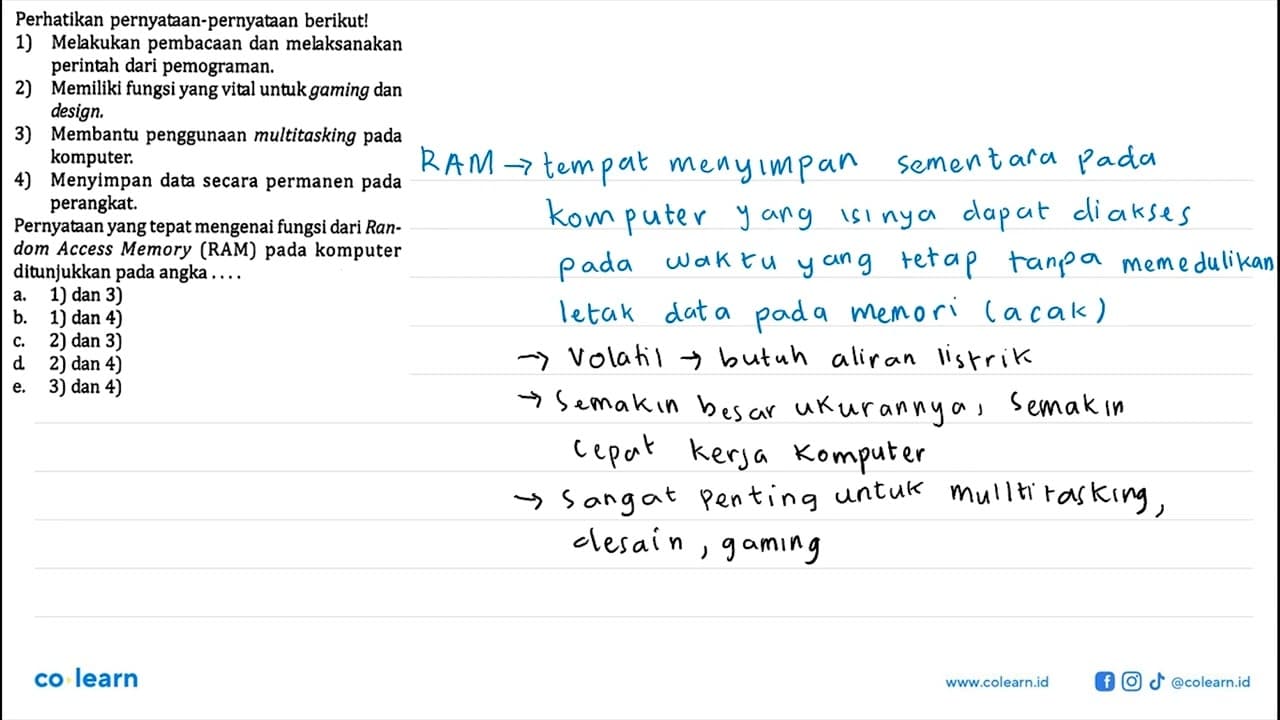 Perhatikan pernyataan-pernyataan berikut!
1) Melakukan pembacaan dan melaksanakan
perintah dari pemograman.
2) Memiliki fungsi yang vital untuk gaming dan
design.
3) Membantu penggunaan multitasking pada
komputer.
4) Menyimpan data secara permanen pada
perangkat.
Pernyataan yang tepat mengenai fungsi dari Ran-
dom Access Memory (RAM) pada komputer
ditunjukkan pada angka . . . .
a. 1) dan 3)
b. 1) dan 4)
c. 2) dan 3)
d. 2) dan 4)
e. 3) dan 4)
RAM → tempat menyimpan sementara pada
komputer yang isinya dapat diakses
pada waktu yang tetap tanpa memedulikan
letak data pada memori (acak)
→ Volatil → butuh aliran listrik
→ Semakin besar ukurannya, semakin
cepat kerja komputer
→ Sangat penting untuk mulltitasking,
desain, gaming
co learn
www.colearn.id
@colearn.id